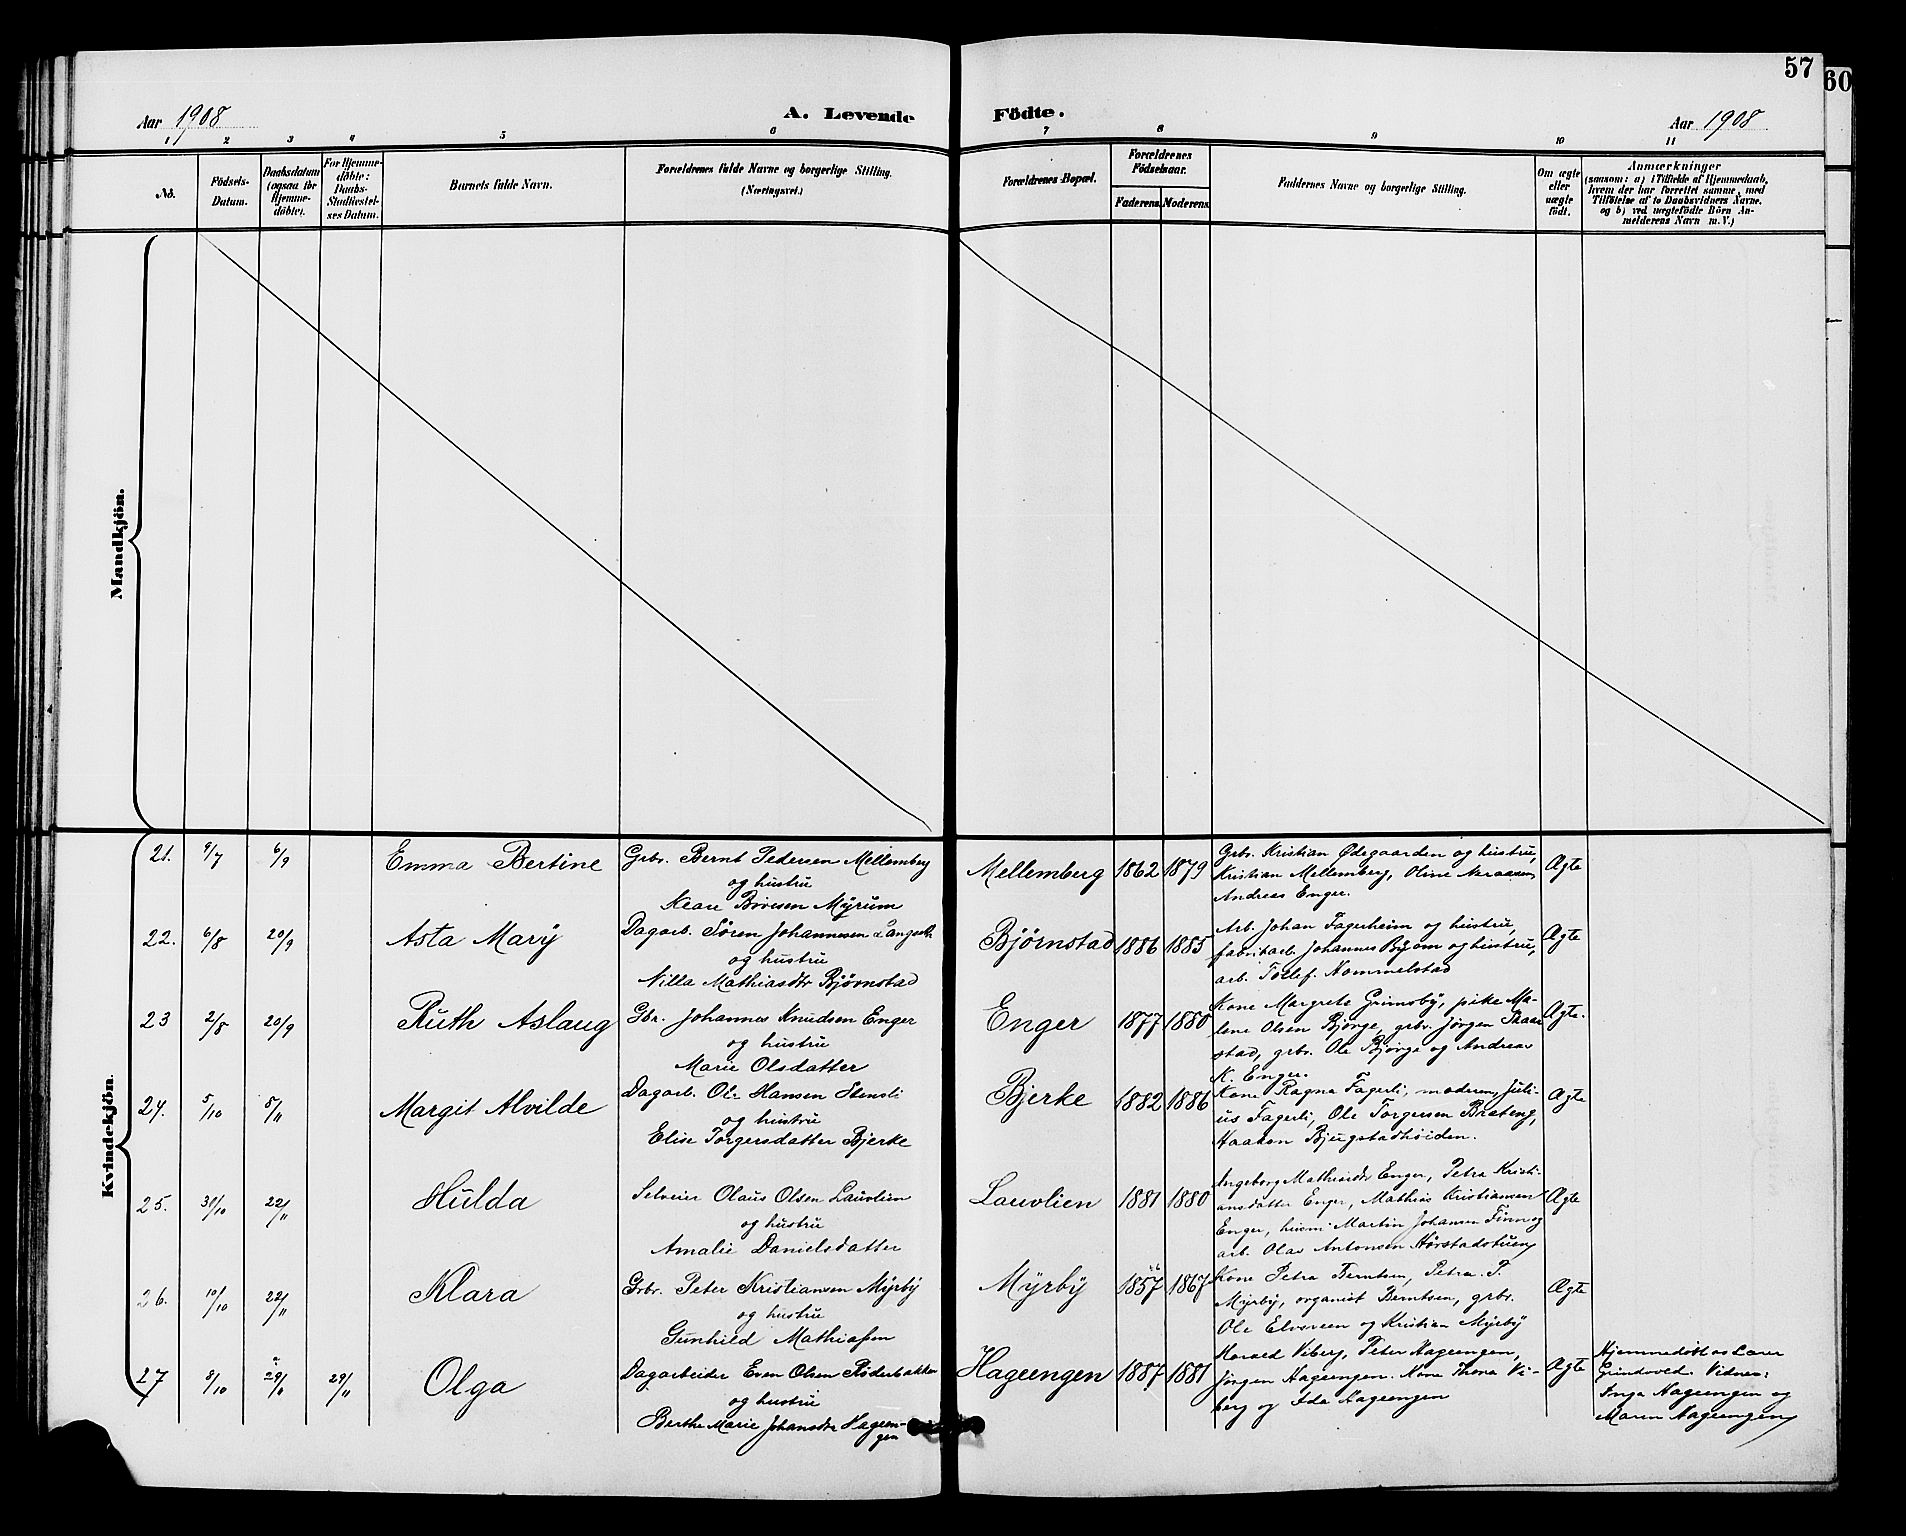 57
60
Aar 1908
A. Levende
Födte.
Aar 1908
1 2 3 4 5 6 7 8 9 10 11
No.
Födsels-
Datum.
Daabsdatum
(ogsaa for
Hjemme-
döbte).
For Hjemme-
döbte:
Daabs-
Stadfæstel-
ses Datum.
Barnets fulde Navn.
Forældrenes fulde Navne og borgerlige Stilling.
(Næringsvei.)
Forældrenes Bopæl.
Forældrenes
Födselsaar.
Faderens.
Moderens.
Faddernes Navne og borgerlige Stilling.
Om ægte
eller
uægte
födt.
Anmærkninger
(saasom: a) i Tilfælde af Hjemmedaab,
hvem der har forrettet samme, med
Tilföielse af to Daabsvidners Navne,
og b) ved uægtefödte Börn An-
melderens Navn m. V.)
Mandkjön.
Kvindekjön.
21. 9/7 6/9 Emma Bertine
Grbr. Bernt Pedersen Mellemberg
og hustru
Myrum
Mellemberg 1862 1879
Grbr. Kristian Ødegaarden og hustru,
Kristian Mellemberg, Oline
Andreas Enger.
Ægte
22. 6/8 20/9 Asta Mary
Dagarb. Søren Johannesen
og hustru
Nilla Mathiasdtr Bjørnstad
Bjørnstad 1886 1885
Arb. Johan Fagerheim og hustru,
fabrikarb. Johannes og hustru,
arb. Tollef. Nommelstad
Ægte
23 2/8 20/9 Ruth Aslaug
Gbr. Johannes Knudsen Enger
og hustru
Marie Olsdatter
Enger 1877 1880
Kone Margrete Grimsby, pike Ma-
lene Olsen Bjørge, grbr. Jørgen Skaar
stad, grbr. Ole Bjørge og Andreas
K. Enger.
Ægte.
24. 5/10 8/11 Margit Alvilde
Dagarb. Ole Hansen Stensli
og hustru
Elise Torgersdatter Bjerke
Bjerke 1882 1886
Kone Ragna Fagerli, moderen, Juli-
us Fagerli, Ole Torgersen Brateng,
Haakon Bjugstadhøiden.
Ægte
25. 31/10 22/11 Hulda
Selveier Olaus Olsen Lauvlien
og hustru
Amalie Danielsdatter
Lauvlien 1881 1880
Ingeborg Mathisdtr Enger, Petra Kristi-
ansdatter Enger, Mathias Kristiansen
Enger, husm. Martin Johansen Finn og
arb. Olav Antonsen Hørstadstuen
Ægte
26. 10/10 22/11 Klara
Grbr. Peter Kristiansen Myrby
og hustru
Gunhild Mathiassen
Myrby 1857 1867
Kone Petra Berntsen, Petra P.
Myrby, organist Berntsen, grbr.
Ole Elvsveen og Kristian Myrby
Ægte
27 8/10 29/11 Olga
Dagarbeider Even Olsen Røderbakken
og hustru
Berthe Marie Johansdtr Hageen-
gen
Hageengen 1887 1881
Harald Viberg, Peter Hageengen,
Jørgen Hageengen. Kone Thora Vi-
berg og Ida Hageengen
Ægte
Hjemmedøbt av Lærer
Grindvold. Vidner:
Inga Hageengen og
Maren Hageengen